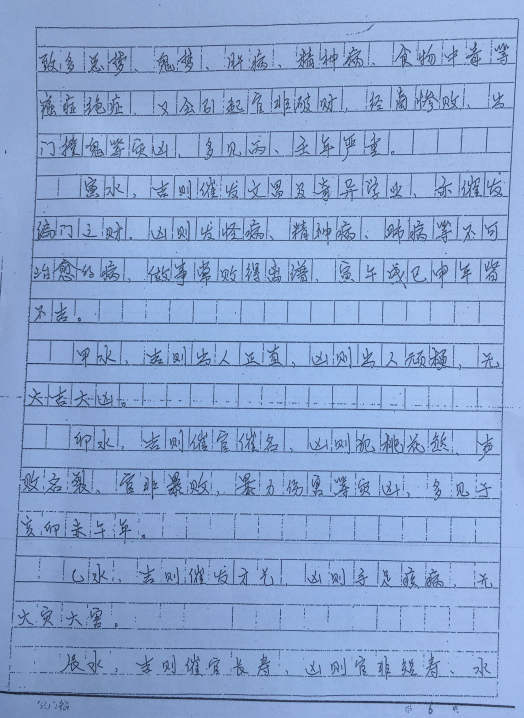 致多恶梦、鬼梦、脑病、精神病、食物中毒等
癌症绝症，又会引起官非破财，经商惨败，出
门撞鬼等灾凶，多见丙、壬年严重。
寅水，吉则催发文男及奇异学业，亦催发
偏门之财，凶则发怪病、精神病、肺病等不可
治愈的病，做事常败得离谱，寅午戌巳申年皆
不吉。
甲水，吉则出人正直，凶则出人顽，无
大吉大凶。
卯水，吉则催官催名，凶则犯桃花煞、声
败名裂，官非暴败，暴力伤害等灾凶，多见于
亥卯未午年。
乙水，吉则催发才艺，凶则手足疾病，无
大灾大害。
辰水，吉则催官长寿，凶则官非短寿、水
第 6 页